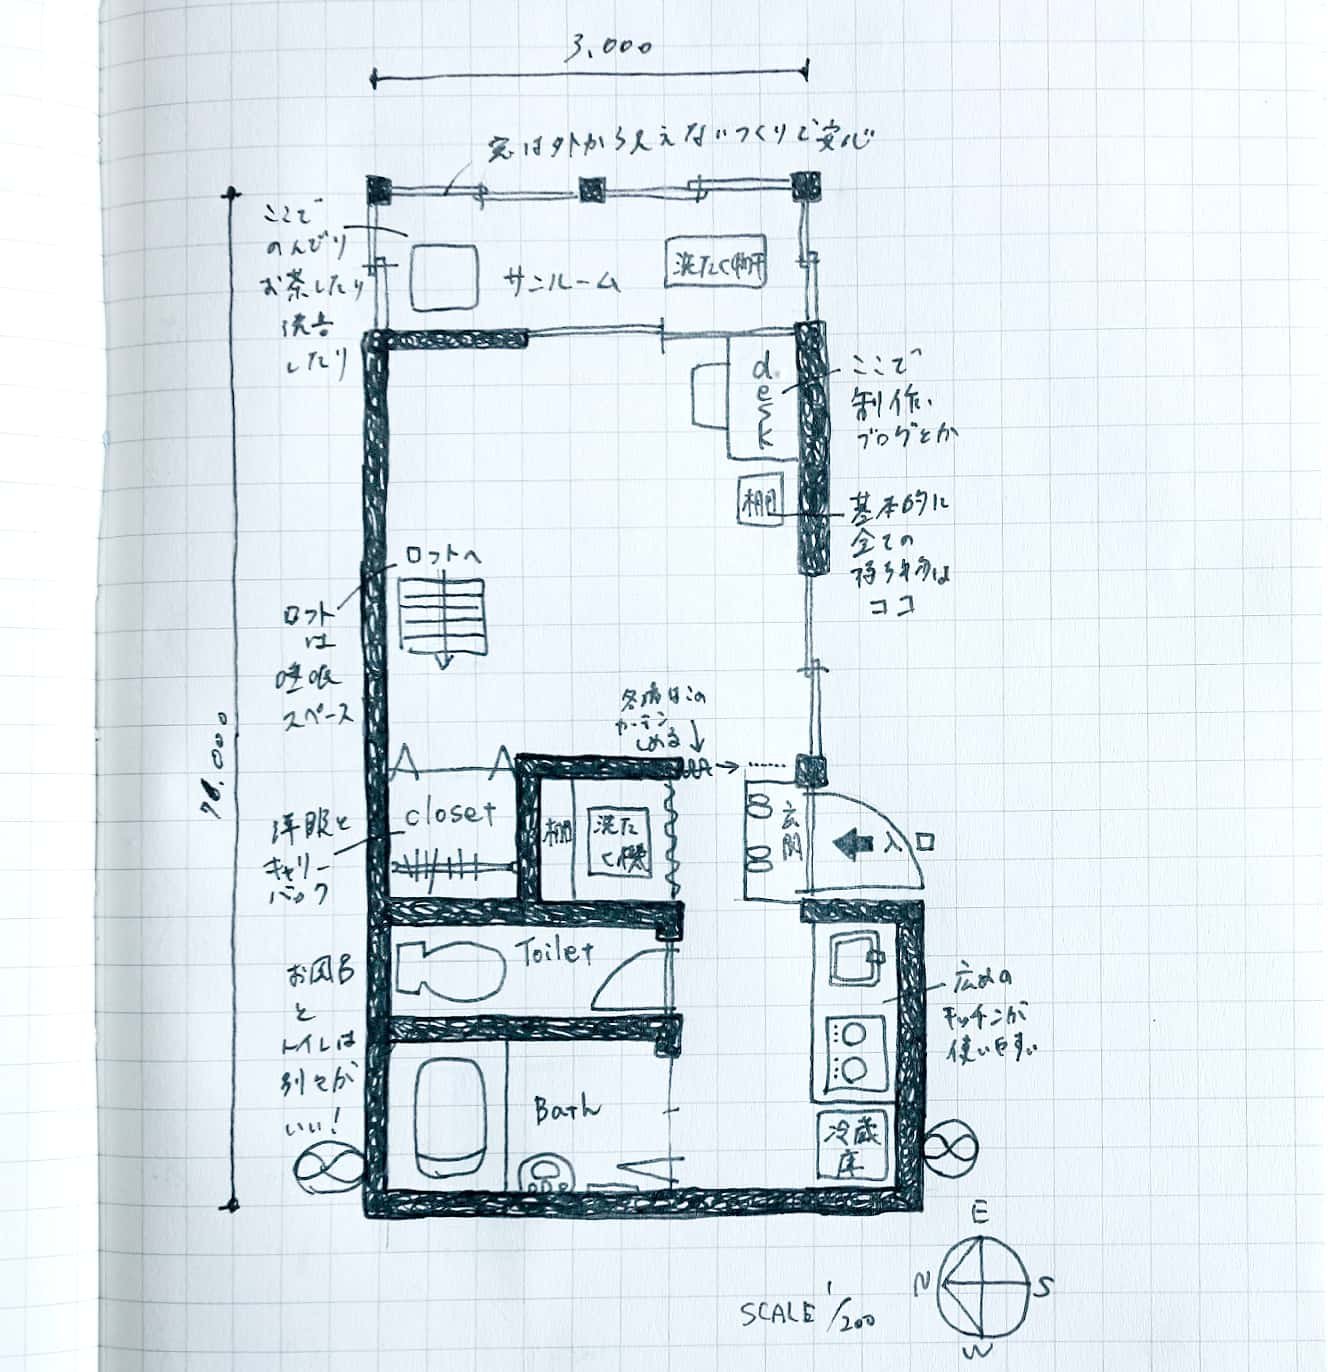 3,000
窓は外から見えないつくりで安心
ここで
のんびり
お茶したり
読書
したり
サンルーム
洗たく物干
desk
ここで
制作、
ブログとか
棚
基本的に
全ての
持ち物は
ココ
ロフトへ
ロフト
は
睡眠
スペース
冬場はこの
カーテン
しめる
closet
洋服と
キャリー
バック
棚
洗た
く機
玄関
入口
Toilet
お風呂
と
トイレは
別々が
いい!
Bath
広めの
キッチンが
使いやすい
冷蔵
庫
E
N
S
W
SCALE 1/200